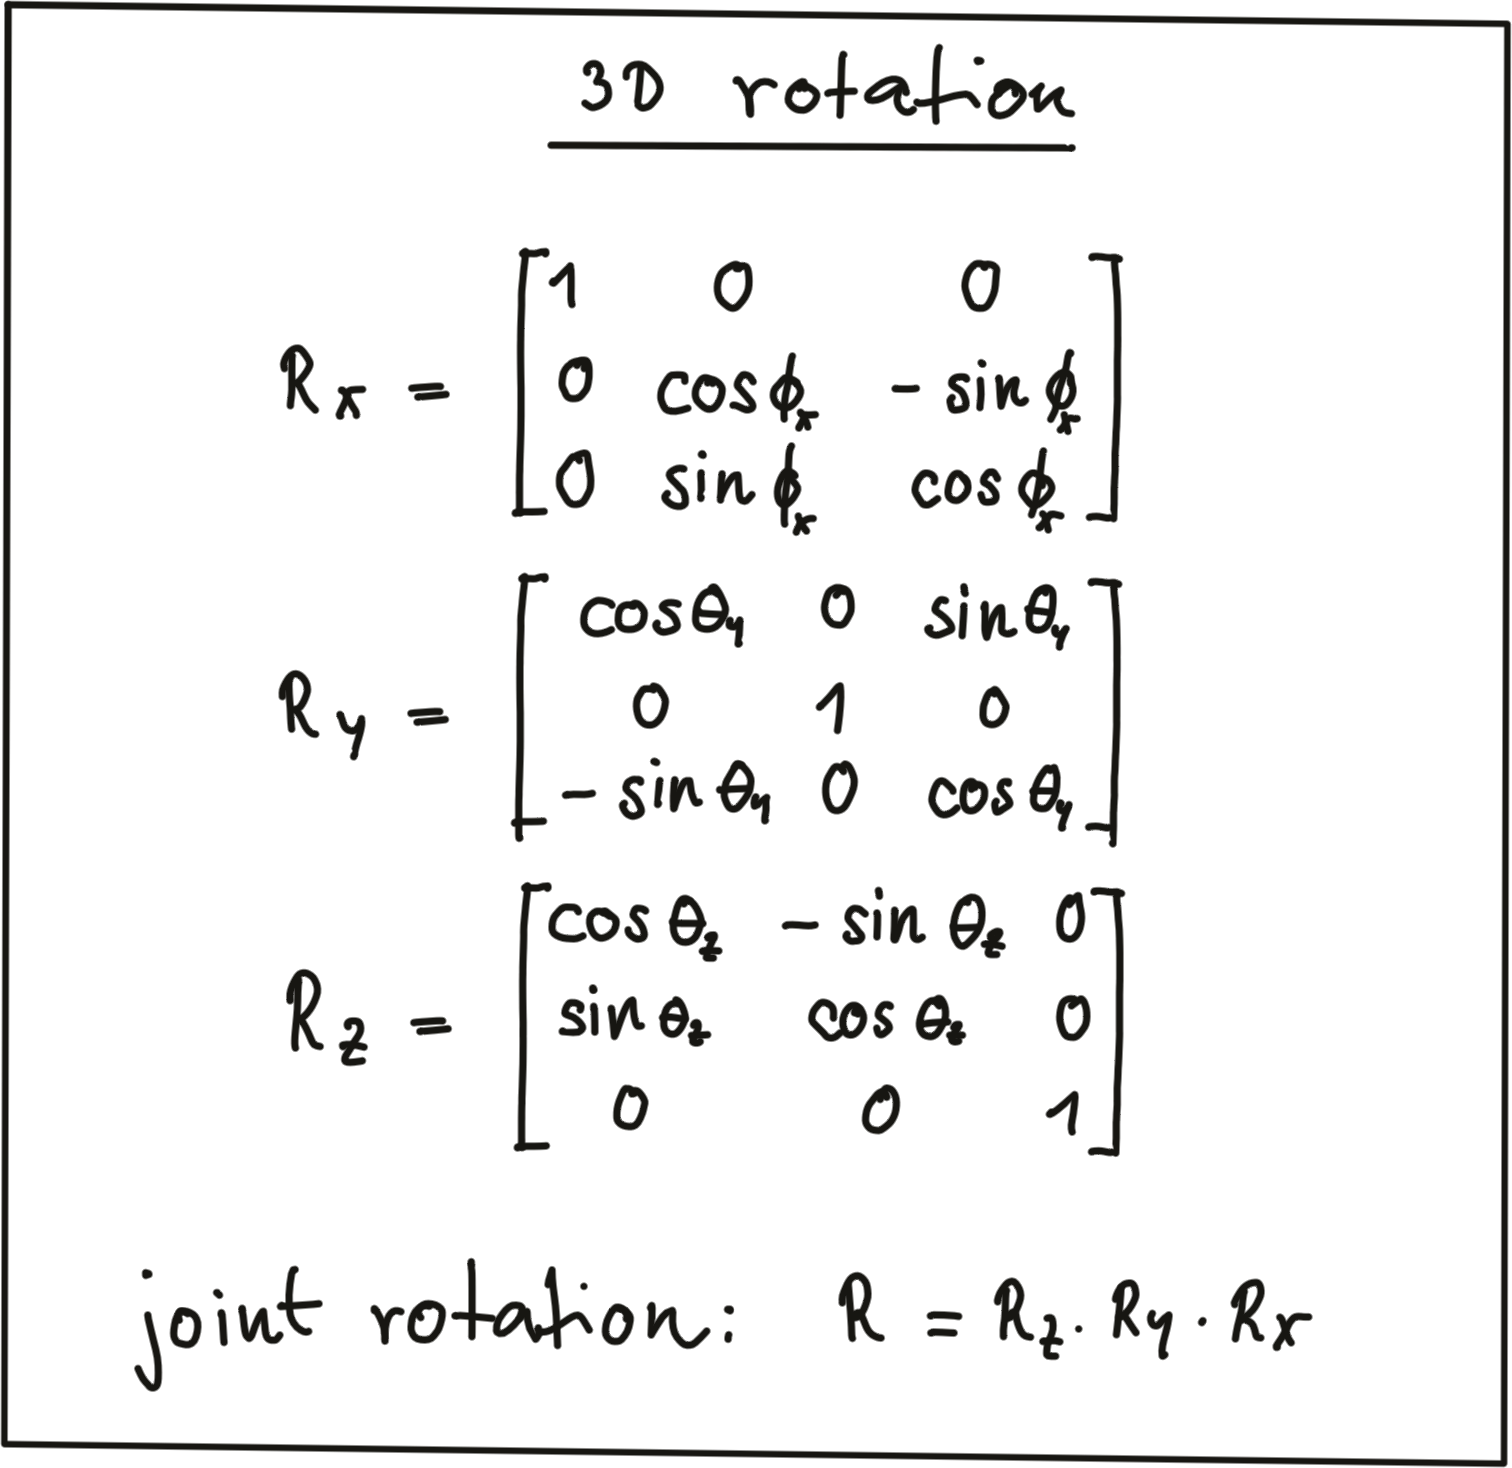 3D rotation
1 0 0
R_x = 0 cos ϕ_x - sin ϕ_x
0 sin ϕ_x cos ϕ_x
cos θ_y 0 sin θ_y
R_y = 0 1 0
- sin θ_y 0 cos θ_y
cos θ_z - sin θ_z 0
R_z = sin θ_z cos θ_z 0
0 0 1
joint rotation: R = R_z · R_y · R_x